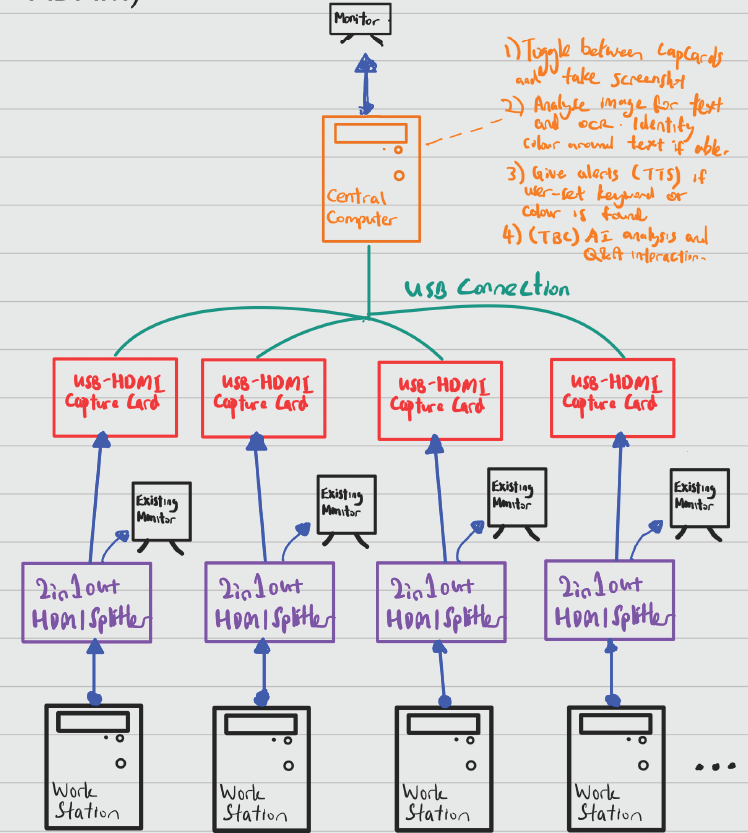 Monitor
1) Toggle between CapCards
and take screenshot
2) Analyse image for text
and OCR. Identify
colour around text if able.
3) Give alerts (TTS) if
user-set keyword or
colour is found
4) (TBC) AI analysis and
Q&A interaction.
Central
Computer
USB Connection
USB-HDMI
Capture Card
USB-HDMI
Capture Card
USB-HDMI
Capture Card
USB-HDMI
Capture Card
Existing
Monitor
Existing
Monitor
Existing
Monitor
Existing
Monitor
2in1out
HDMI Splitter
2in1out
HDMI Splitter
2in1out
HDMI Splitter
2in1out
HDMI Splitter
Work
Station
Work
Station
Work
Station
Work
Station
...